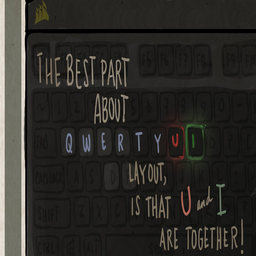 THE BEST PART
ABOUT
QWERTYUI
LAYOUT,
IS THAT U and I
ARE TOGETHER!